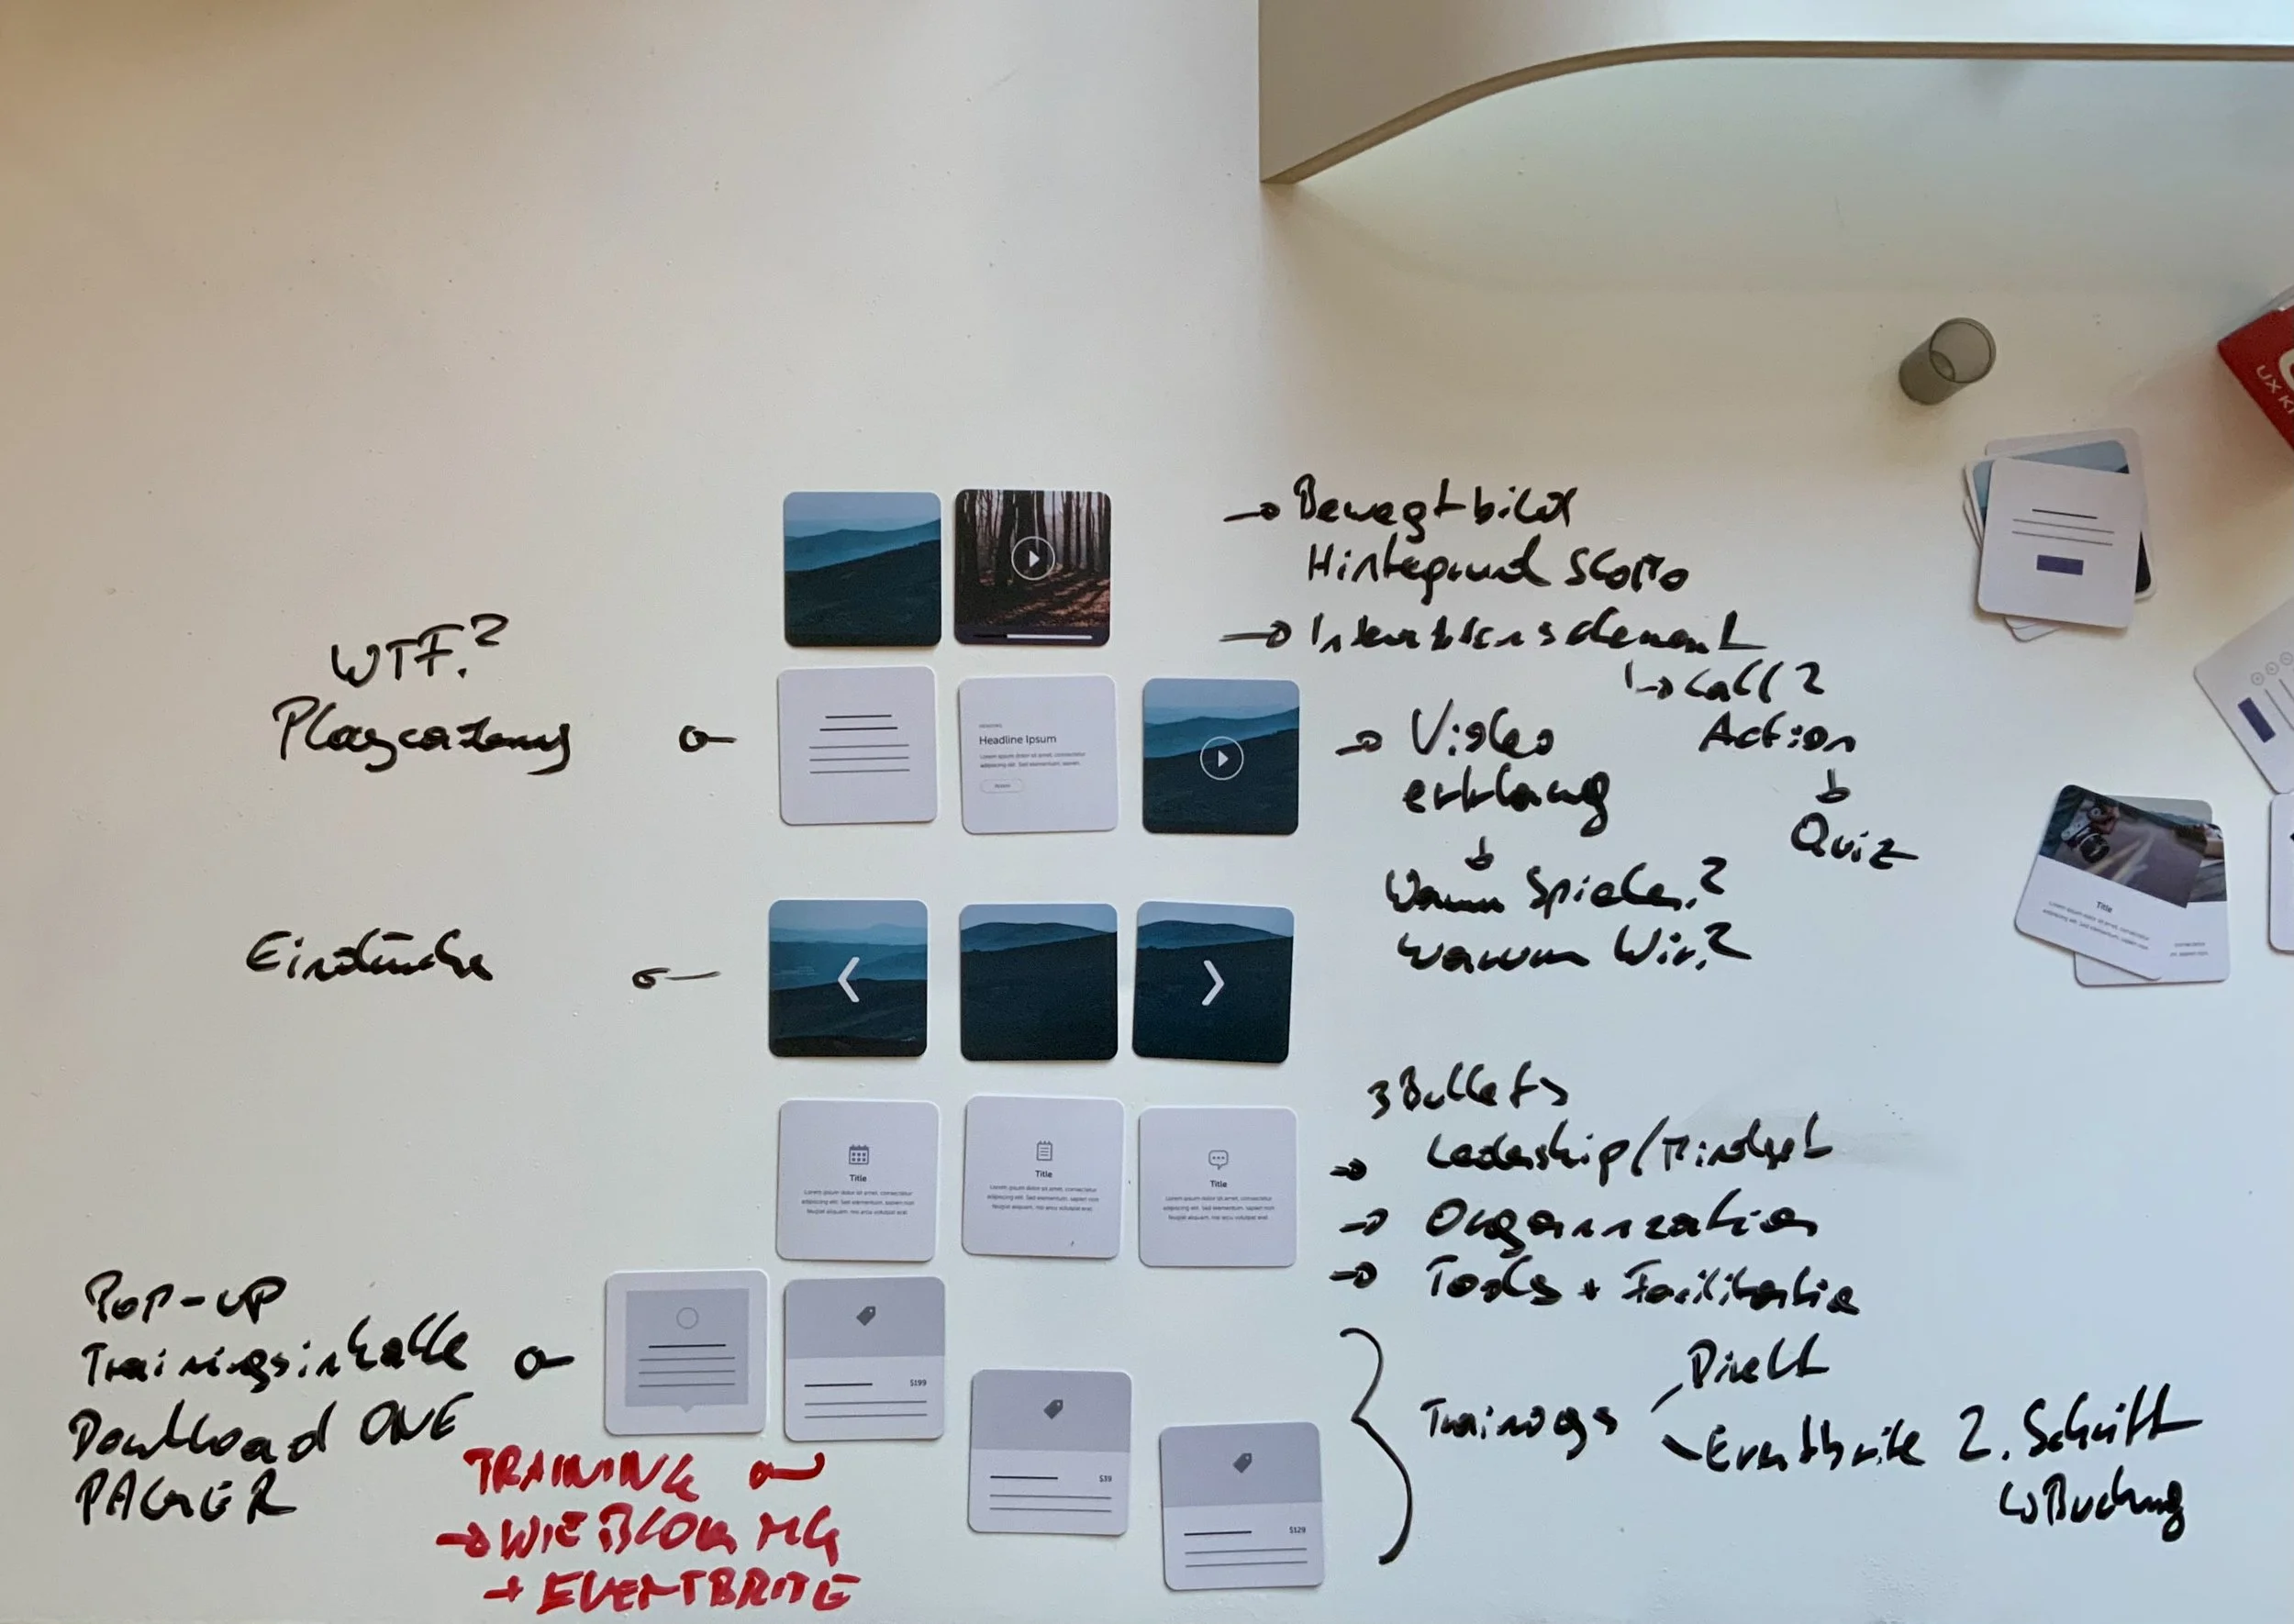 → Bewegtbild
Hintergrund SLOMO
→ Interaktionselement
↳ Call 2
Action
↓
Quiz
WTF?
Playcademy
Headline Ipsum
→ Video
erklärung
↓
Warum Spielen?
Warum Wir?
Eindrücke
3 Bullets
→ Leadership/Mindset
→ Organization
→ Tools + Facilitation
Title
Title
Title
POP-UP
Trainingsinhalte
Download ONE
PAGER
$199
$39
$129
Trainings
Direkt
Eventbrite 2. Schritt
↳ Buchung
TRAINING
→ WIE BLOG MG
+ EVENTBRITE
Title
UX KI